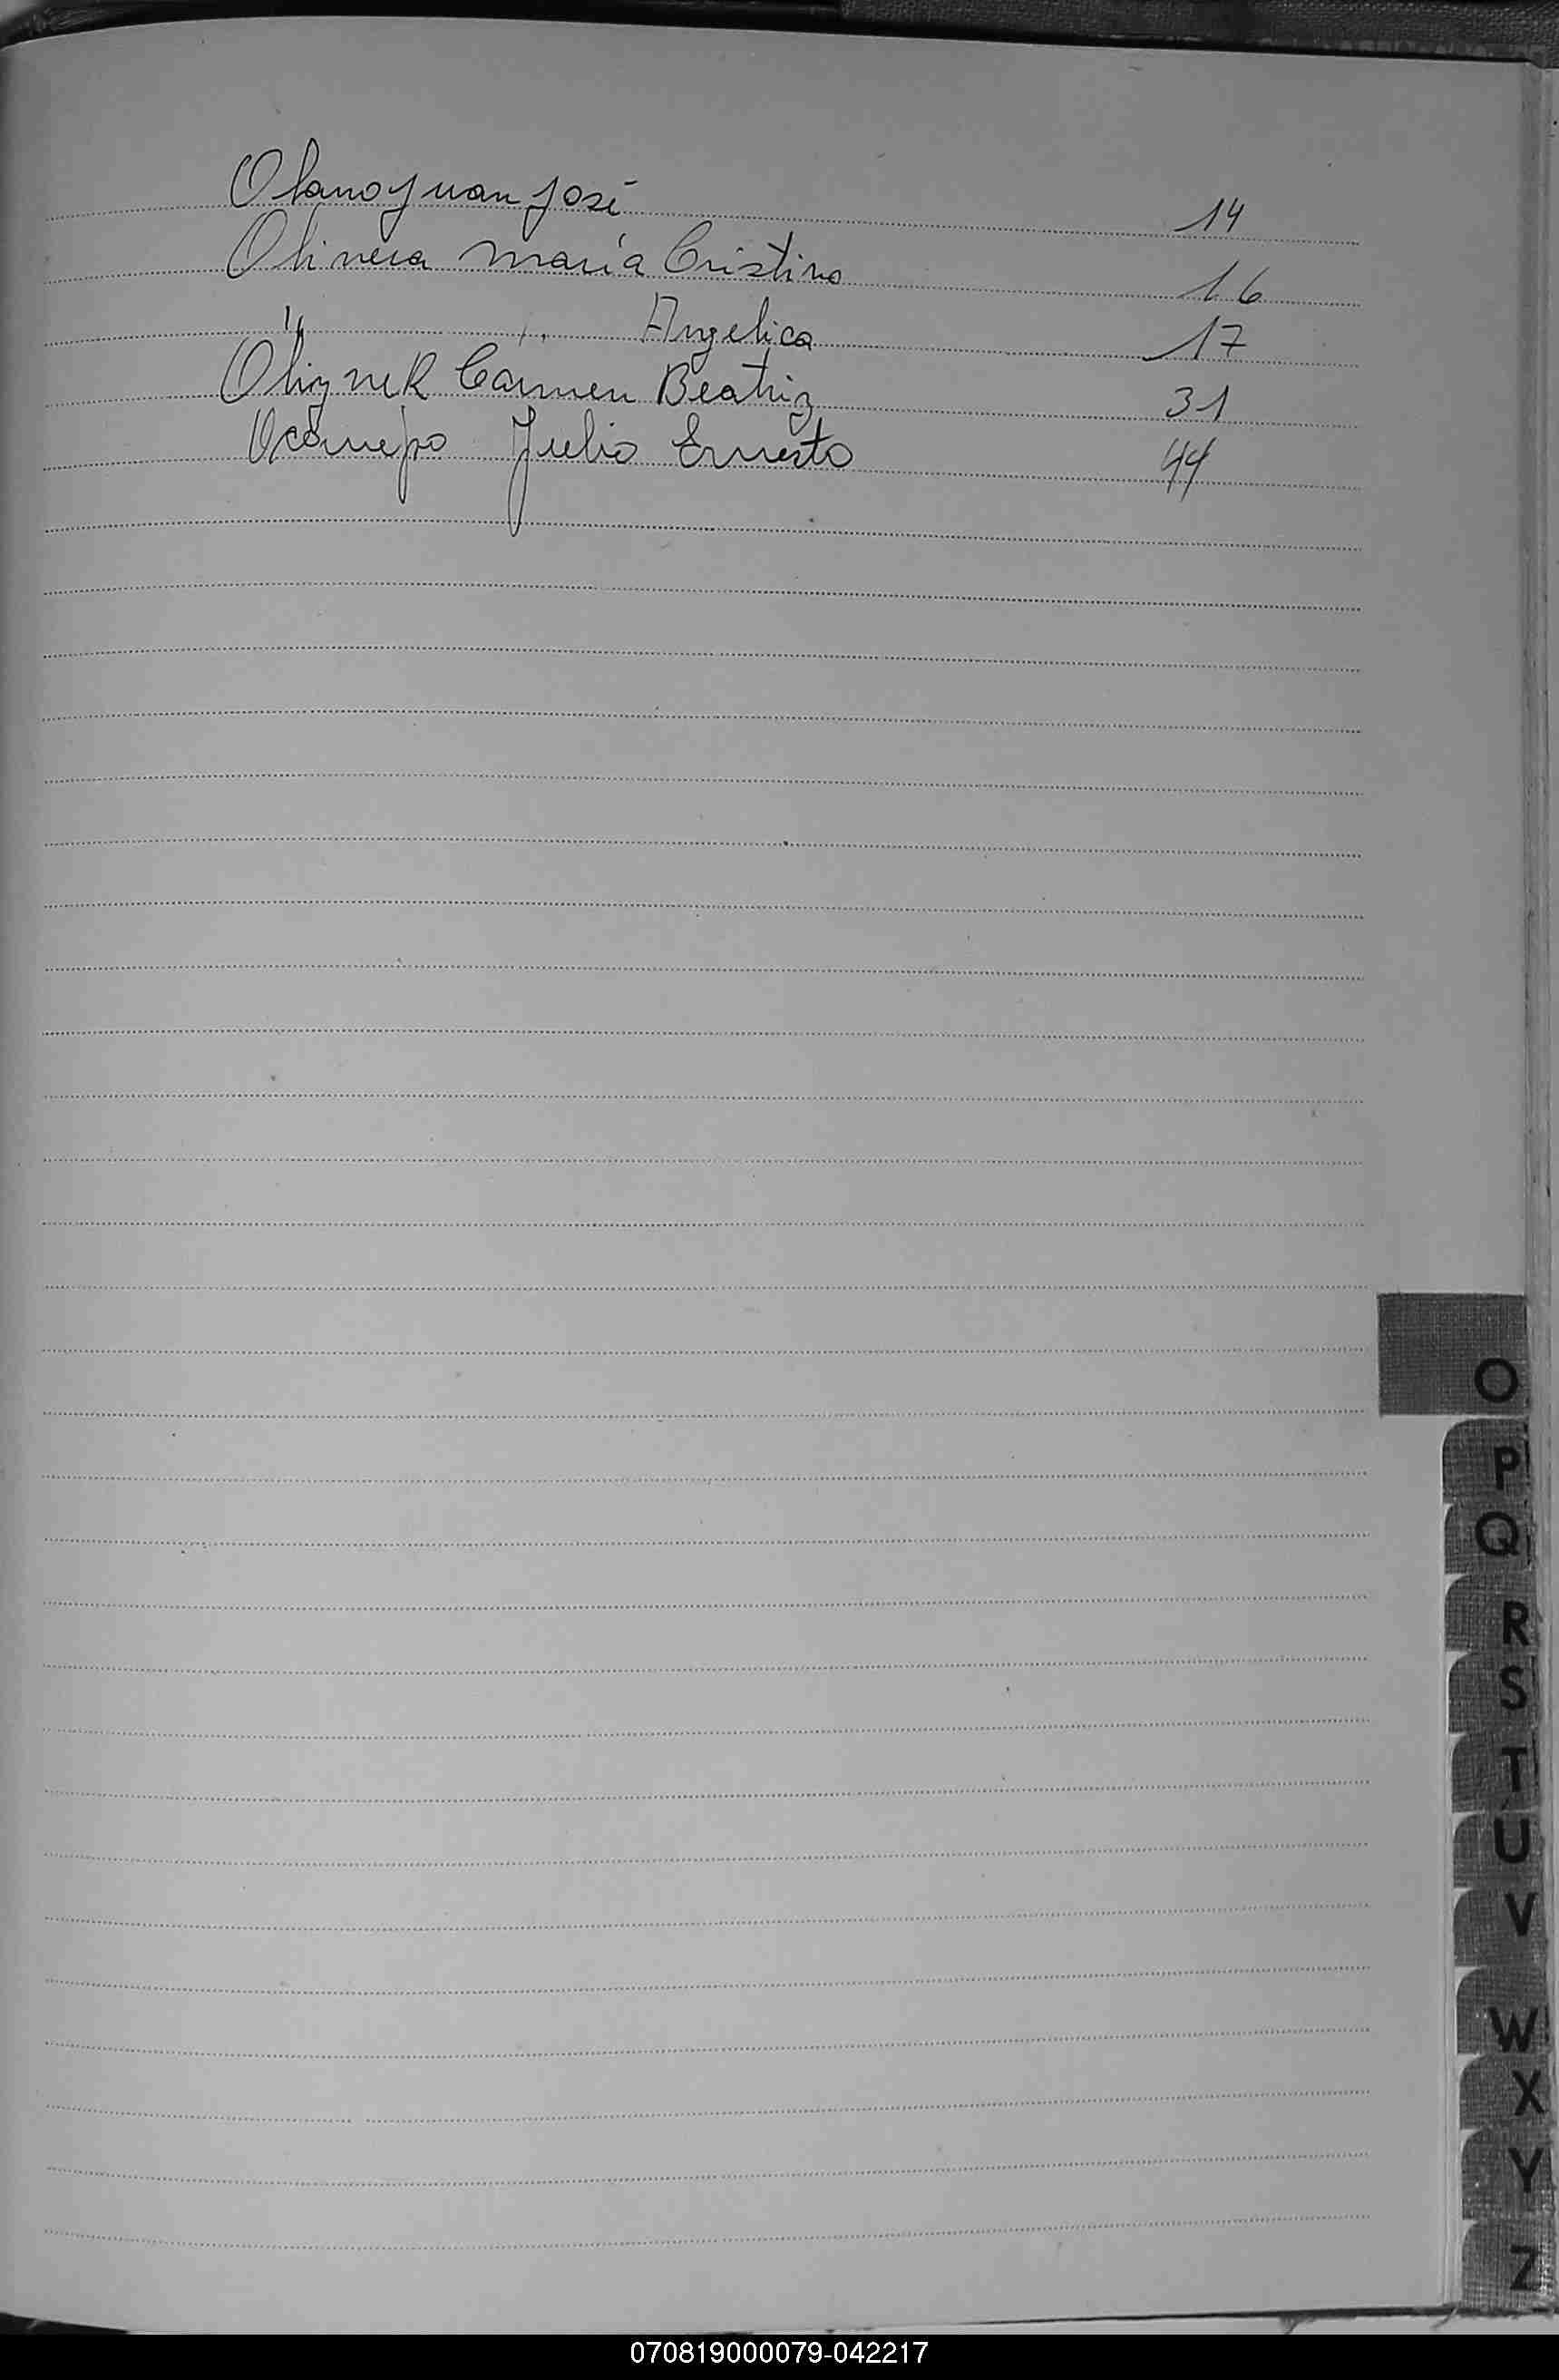 Olano Juan José 14
Olivera María Cristina 16
" " Angelica 17
Carmen Beatriz 31
Ocampo Julio Ernesto 44
O
P
Q
R
S
T
U
V
W
X
Y
Z
070819000079-042217